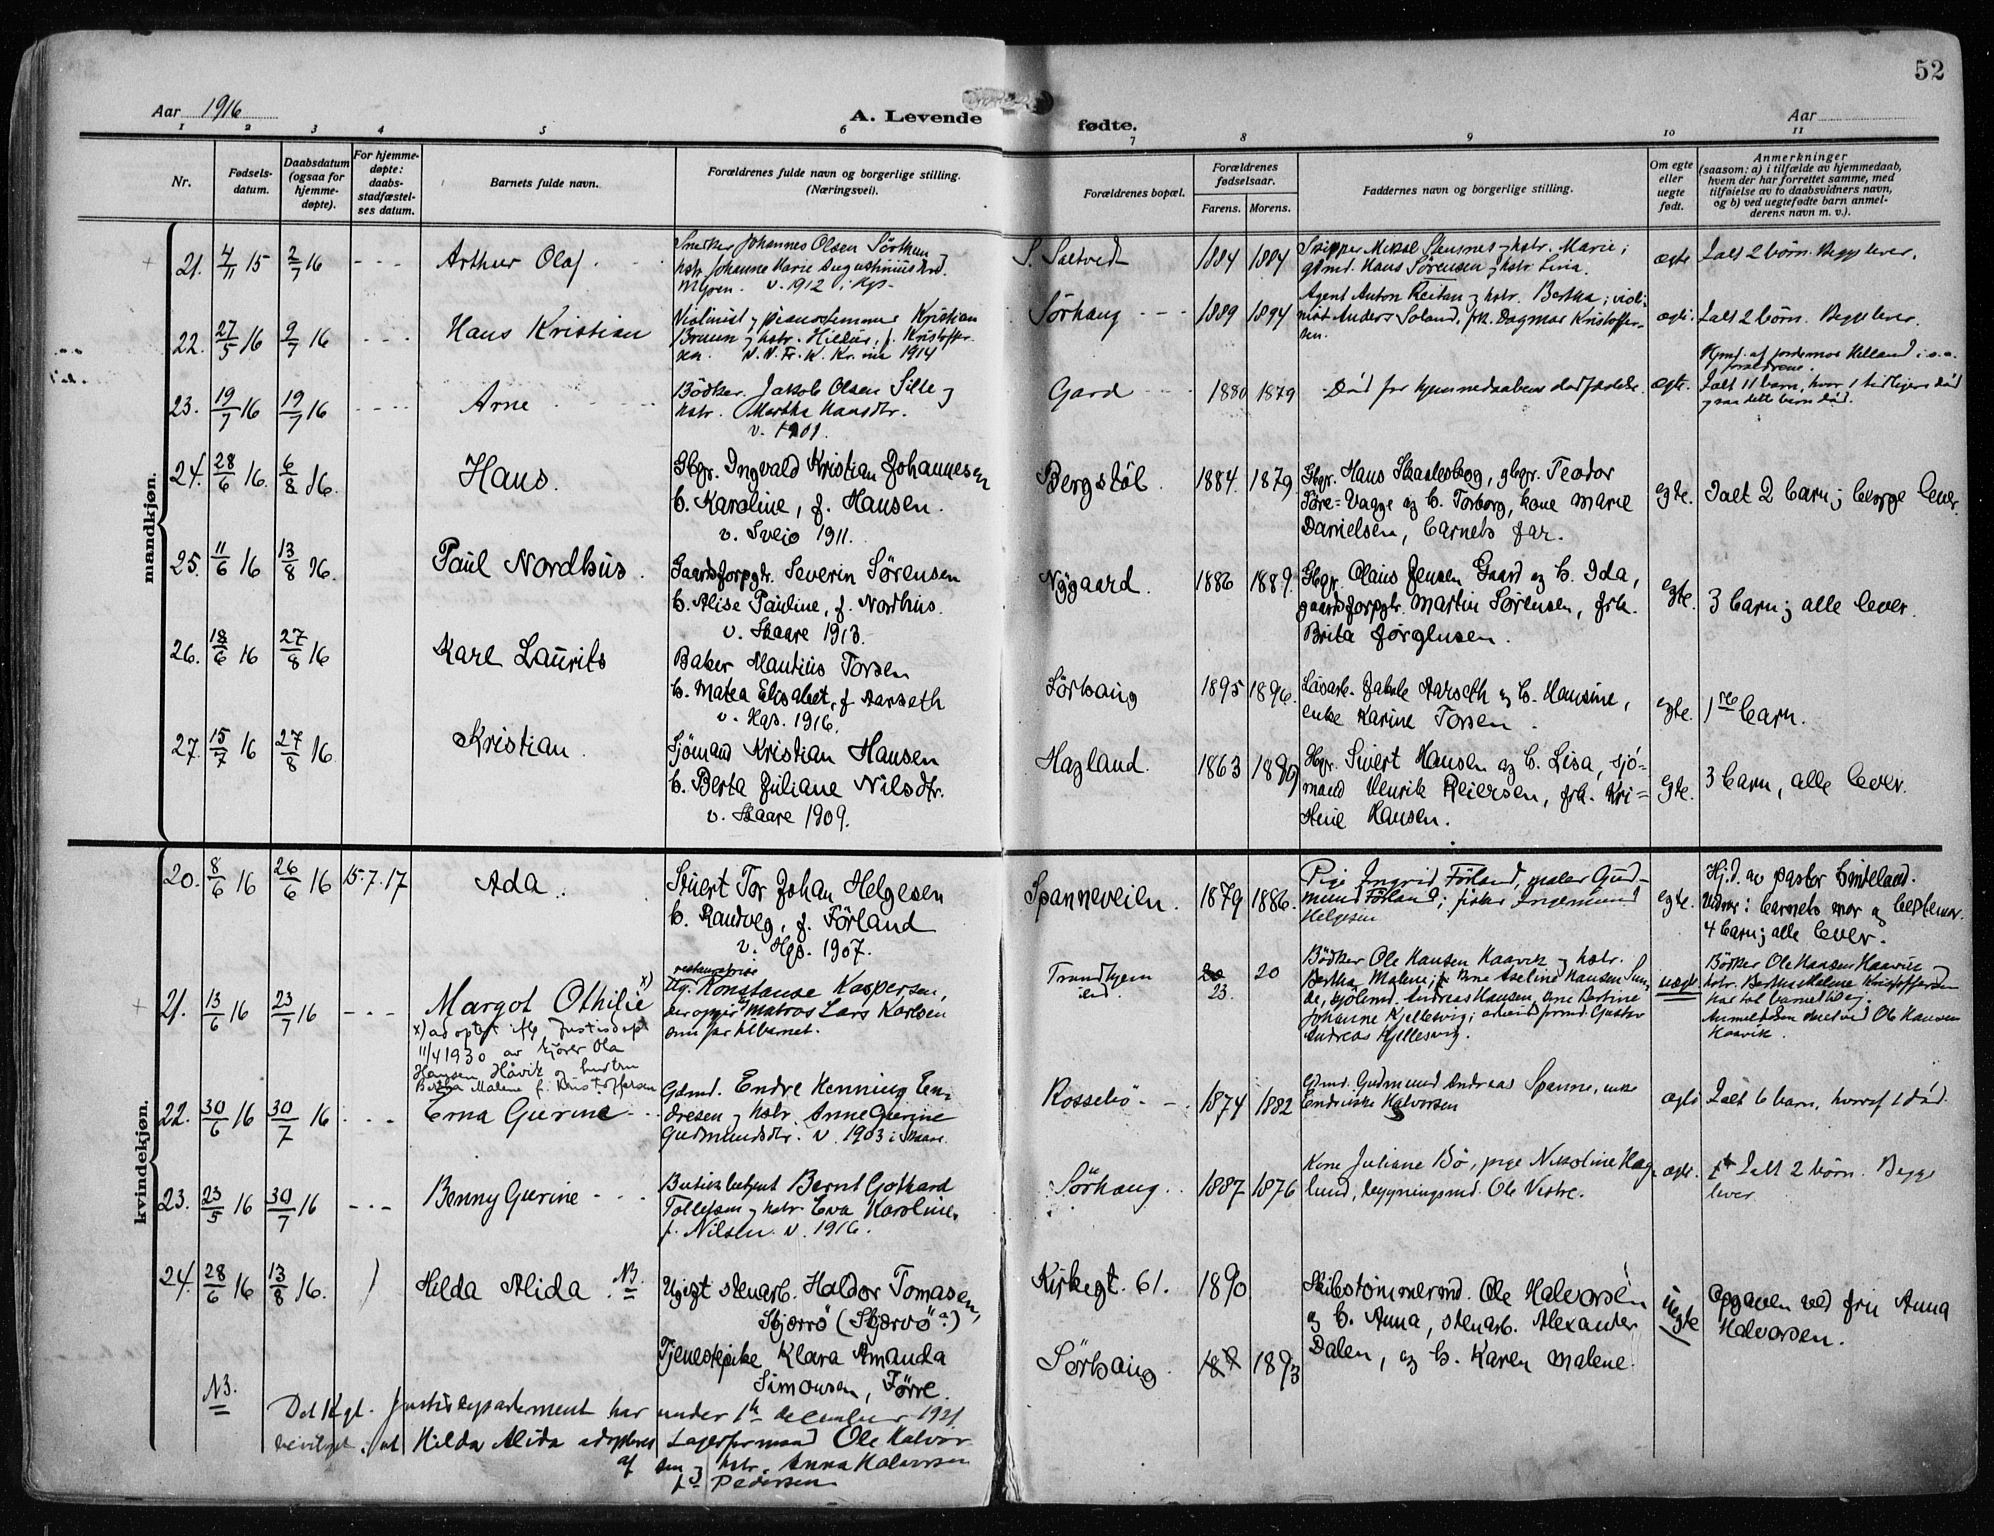 52
Aar 1916
A. Levende fødte.
Aar
1 2 3 4 5 6 7 8 9 10 11
Nr.
Fødsels-
datum.
Daabsdatum
(ogsaa for
hjemme-
døpte).
For hjemme-
døpte:
daabs-
stadfæstel-
ses datum.
Barnets fulde navn.
Forældrenes fulde navn og borgerlige stilling.
(Næringsvei).
Forældrenes bopæl.
Forældrenes
fødselsaar.
Farens. Morens.
Faddernes navn og borgerlige stilling.
Om egte
eller
uegte
født.
Anmerkninger
(saasom: a) i tilfælde av hjemmedaab,
hvem der har forrettet samme, med
tilføielse av to daabsvidners navn,
og b) ved uegtefødte barn anmel-
derens navn m. v.).
mandkjøn.
21. 4/11 15 2/7 16 Arthur Olaf
Snekker Johannes Olsen Sörhaug
hstr. Johanne Marie Augustiniusd.
Myren. v. 1912 i Hgs.
S. Saltvedt 1884 1884
Skipper Mikal Stensnes og hstr. Marie;
gbmd. Hans Sørensen og hstr. Lina.
ægte Ialt 2 børn. Begge lever.
22. 27/5 16 2/7 16 Hans Kristian
Violinist og pianostemmer Kristian
Bruun og hstr. Hildur, f. Kristoffer-
sen. N. N. Fr. K. Kr.nia 1914
Sørhaug 1889 1894
Agent Anton Reitan og hstr. Bertha; violi-
nist Anders Soland, frk. Dagmar Kristoffer-
sen.
ægte. Ialt 2 børn. Begge lever.
23. 19/7 16 19/7 16 Arne
Bödker Jakob Olsen Sille og
hstr. Martha Hansdtr.
v. 1901.
Gard 1880 1879
Død før hjemmedaabens stadfæstelse.
ægte.
Hjmd. af jordemor Helland i o.a.
forældrene.
Ialt 11 barn, hvor 1 tidligere død
og saa dette barn død.
24. 28/6 16. 6/8 16. Hans.
Gbgr. Ingvald Kristian Johannesen
h. Karoline, f. Hansen.
v. Sveio 1911.
Bergstøl. 1884. 1879
Gbgr. Hans Skaaleskog, gbgr. Teodor
Töre-Vagge og h. Torborg, kone Marie
Danielsen, barnets far.
egte. Ialt 2 barn; begge lever.
25. 11/6 16 13/8 16. Paul Nordhus.
Gaardsforpgtr. Severin Sørensen
h. Alise Pauline, f. Nordhus.
v. Skaare 1913.
Nygaard. 1886 1889.
Gbgr. Olaus Jensen Gaard og h. Ida,
gaardsforpgtr. Martin Sørensen, frk.
Brita Jørgensen.
egte. 3 barn; alle lever.
26. 18/6 16 27/8 16 Karl Laurits
Baker Mautius Torsen
h. Matea Elisabet, f. Aarseth
v. Hgs. 1916.
Sörhaug 1895 1896.
Løsarb. Jakob Aarseth og h. Hansine,
enke Karine Torsen.
egte. 1ste barn.
27. 15/7 16 27/8 16. Kristian.
Sjömand Kristian Hansen
h. Berta Juliane Nilsdtr.
v. Skaare 1909.
Hagland. 1863 1889
Gbgr. Sivert Hansen og h. Lisa, sjö-
mand Henrik Reiersen, frk. Kri-
stine Hansen.
egte. 3 barn, alle lever.
kvindekjøn.
20. 8/6 16 26/6 16 15.7.17 Ada.
Stuert Tor Johan Helgesen
h. Randveg, f. Förland
v. Hgs. 1907.
Spanneveien. 1879 1886.
Pige Ingrid Förland, maler Gud-
mund Förland; fisker Ingemund
Helgesen
egte.
Hj.d. av pastor Lindeland.
Vidner: barnets mor og bestemor.
4 barn; alle lever.
21. 13/6 16 23/7 16 Margot Othilie x)
x) adoptert ifle Justisdept
11/4 1930 av kjører Ola
Hansen Håvik og hustru
Bertha Malene f. Kristoffersen
restauratrise
Ug. Konstanse Kaspersen,
der opgir matros Lars Karlsen
som far til barnet.
Trondhjem 20 20
23.
Bödker Ole Hansen Haavik og hstr.
Bertha Malene, kone Aseline Hansen Sun-
de, sjömd. Andreas Hansen, kone Bertine
Johanne Kjellesvig; arbeidsformd. Gustav
Andreas Kjellesvig.
uegte
Bödker Ole Hansen Haavik og
hstr. Bertha Malene Kristoffersen
har tat barnet til eg.
Anmeldelsen skedd ved Ole Hansen
Haavik
22. 30/6 16 30/7 16 Erna Gurine
Gbmd. Endre Henning En-
dresen og hstr. Anne Gurine
Gudmundsdtr. v. 1903 i Skaare.
Rossebö 1874 1882
Gbmd. Gudmund Andreas Spanne, enke
Endrikke Halvorsen
ægte Ialt 6 barn, hvoraf 1 död.
23. 23/5 16 30/7 16 Benny Gurine
Butikbetjent Bernt Gothard
Tollefsen og hstr. Eva Karoline,
f. Nilsen v. 1916.
Sørhaug 1887 1876
Kone Juliane Bö, pige Nikoline Hag-
lund, bygningsmd. Ole Vestre.
ægte. Ialt 2 börn. Begge
lever.
24. 28/6 16 13/8 16. Hilda Alida. NB.
Ugigt stenarb. Haldor Tomasen,
Skjærrö (Skjærvö?)
Tjenestepike Klara Amanda
Simonsen, Førre.
Kirkegt. 61. 1890
Sørhaug 1893
Skibstömmermd. Ole Halvorsen
og h. Anna, stenarb. Alexander
Dalen, og h. Karen Malene.
uegte
Opgaven ved fru Anna
Halvorsen.
NB.
Det Kgl. Justisdepartement har under 1ste december 1921
bevilget, at Hilda Alida adopteres Lagerformand Ole Halvor-
af sen og hstr. Anna Halvorsen
f. Pedersen